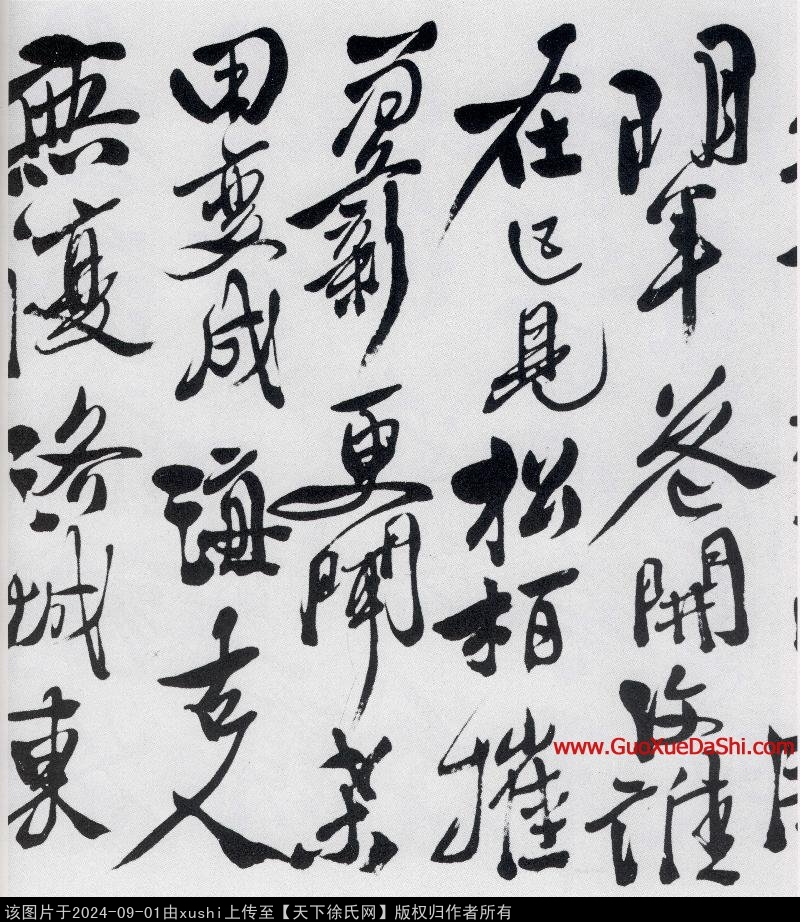 明年花開復誰
在已見松柏摧
為薪更聞桑
田變成海古人
無復洛城東
www.GuoXueDaShi.com
该图片于2024-09-01由xushi上传至【天下徐氏网】版权归作者所有